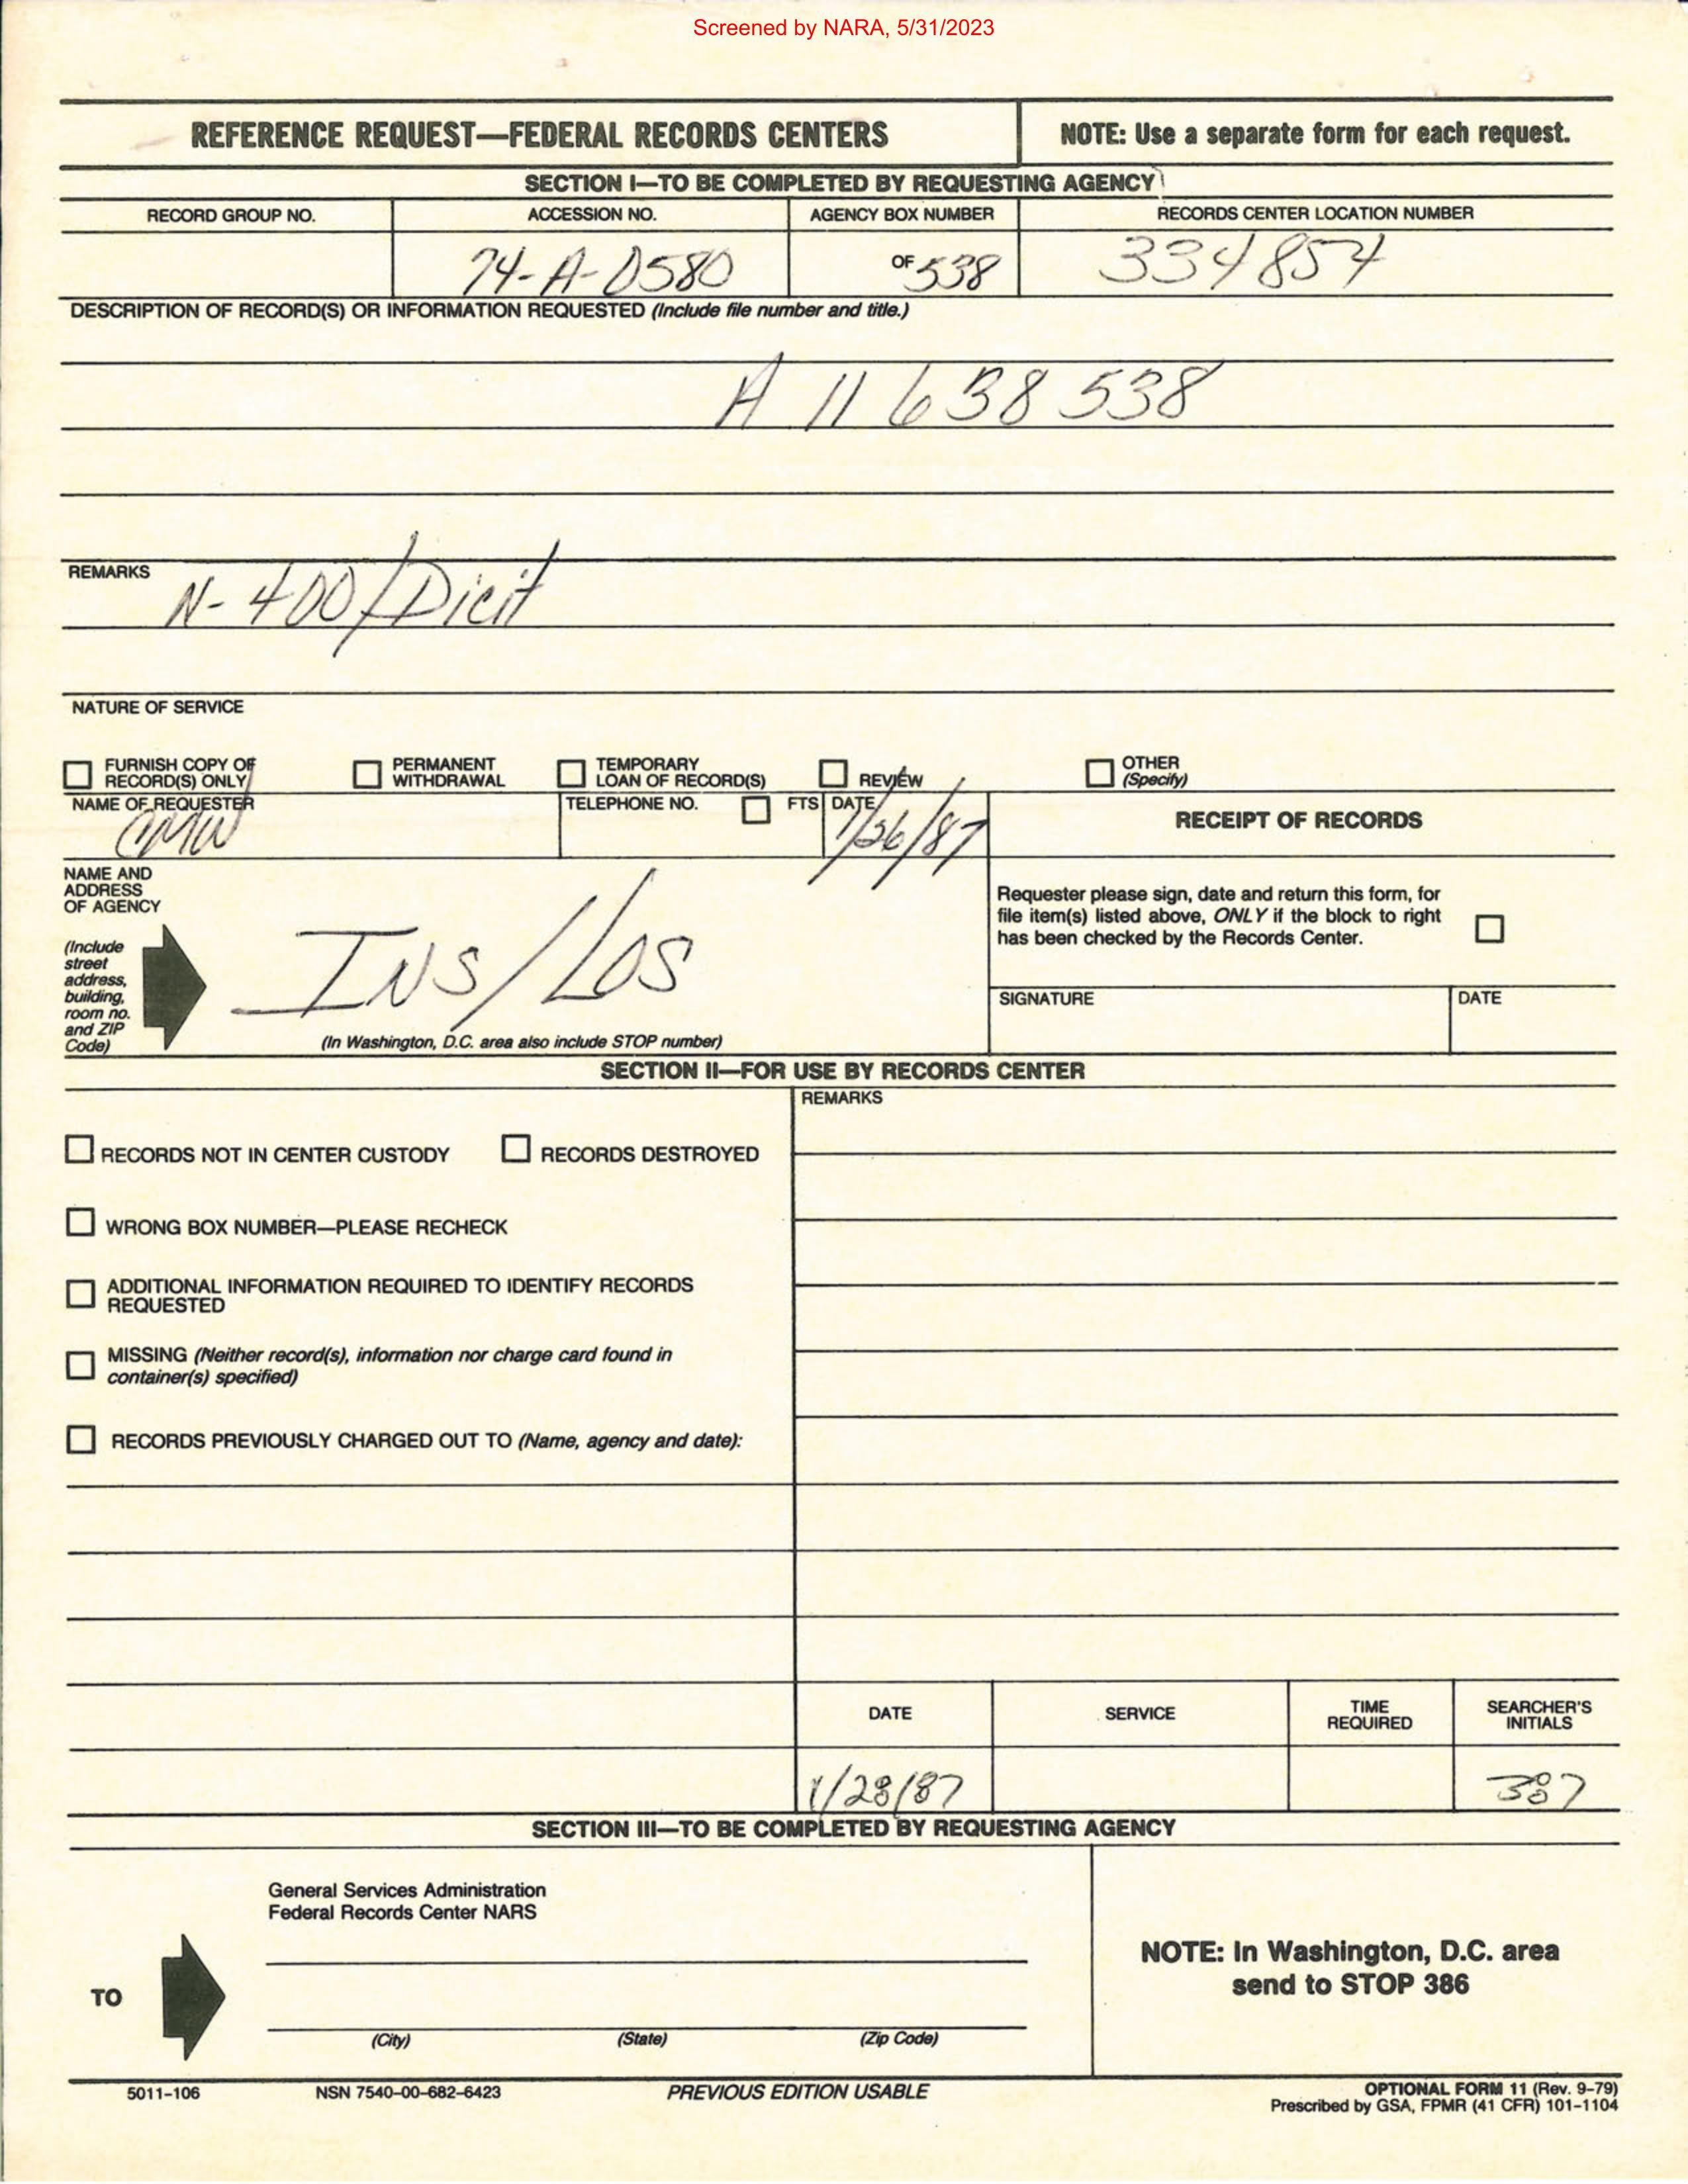 Screened by NARA, 5/31/2023
REFERENCE REQUEST—FEDERAL RECORDS CENTERS
NOTE: Use a separate form for each request.
SECTION I—TO BE COMPLETED BY REQUESTING AGENCY
RECORD GROUP NO. ACCESSION NO. AGENCY BOX NUMBER RECORDS CENTER LOCATION NUMBER
74-A-0580 OF 538 334854
DESCRIPTION OF RECORD(S) OR INFORMATION REQUESTED (Include file number and title.)
A 11 638 538
REMARKS
N-400/Dicit
NATURE OF SERVICE
FURNISH COPY OF RECORD(S) ONLY
PERMANENT WITHDRAWAL
TEMPORARY LOAN OF RECORD(S)
REVIEW
OTHER (Specify)
NAME OF REQUESTER
CMW
TELEPHONE NO.
FTS
DATE
1/26/87
RECEIPT OF RECORDS
NAME AND
ADDRESS
OF AGENCY
(Include
street
address,
building,
room no.
and ZIP
Code)
INS/LOS
(In Washington, D.C. area also include STOP number)
Requester please sign, date and return this form, for
file item(s) listed above, ONLY if the block to right
has been checked by the Records Center.
SIGNATURE DATE
SECTION II—FOR USE BY RECORDS CENTER
REMARKS
RECORDS NOT IN CENTER CUSTODY RECORDS DESTROYED
WRONG BOX NUMBER—PLEASE RECHECK
ADDITIONAL INFORMATION REQUIRED TO IDENTIFY RECORDS
REQUESTED
MISSING (Neither record(s), information nor charge card found in
container(s) specified)
RECORDS PREVIOUSLY CHARGED OUT TO (Name, agency and date):
DATE SERVICE TIME REQUIRED SEARCHER'S INITIALS
1/28/87 387
SECTION III—TO BE COMPLETED BY REQUESTING AGENCY
General Services Administration
Federal Records Center NARS
TO
(City) (State) (Zip Code)
NOTE: In Washington, D.C. area
send to STOP 386
5011-106 NSN 7540-00-682-6423 PREVIOUS EDITION USABLE
OPTIONAL FORM 11 (Rev. 9-79)
Prescribed by GSA, FPMR (41 CFR) 101-1104